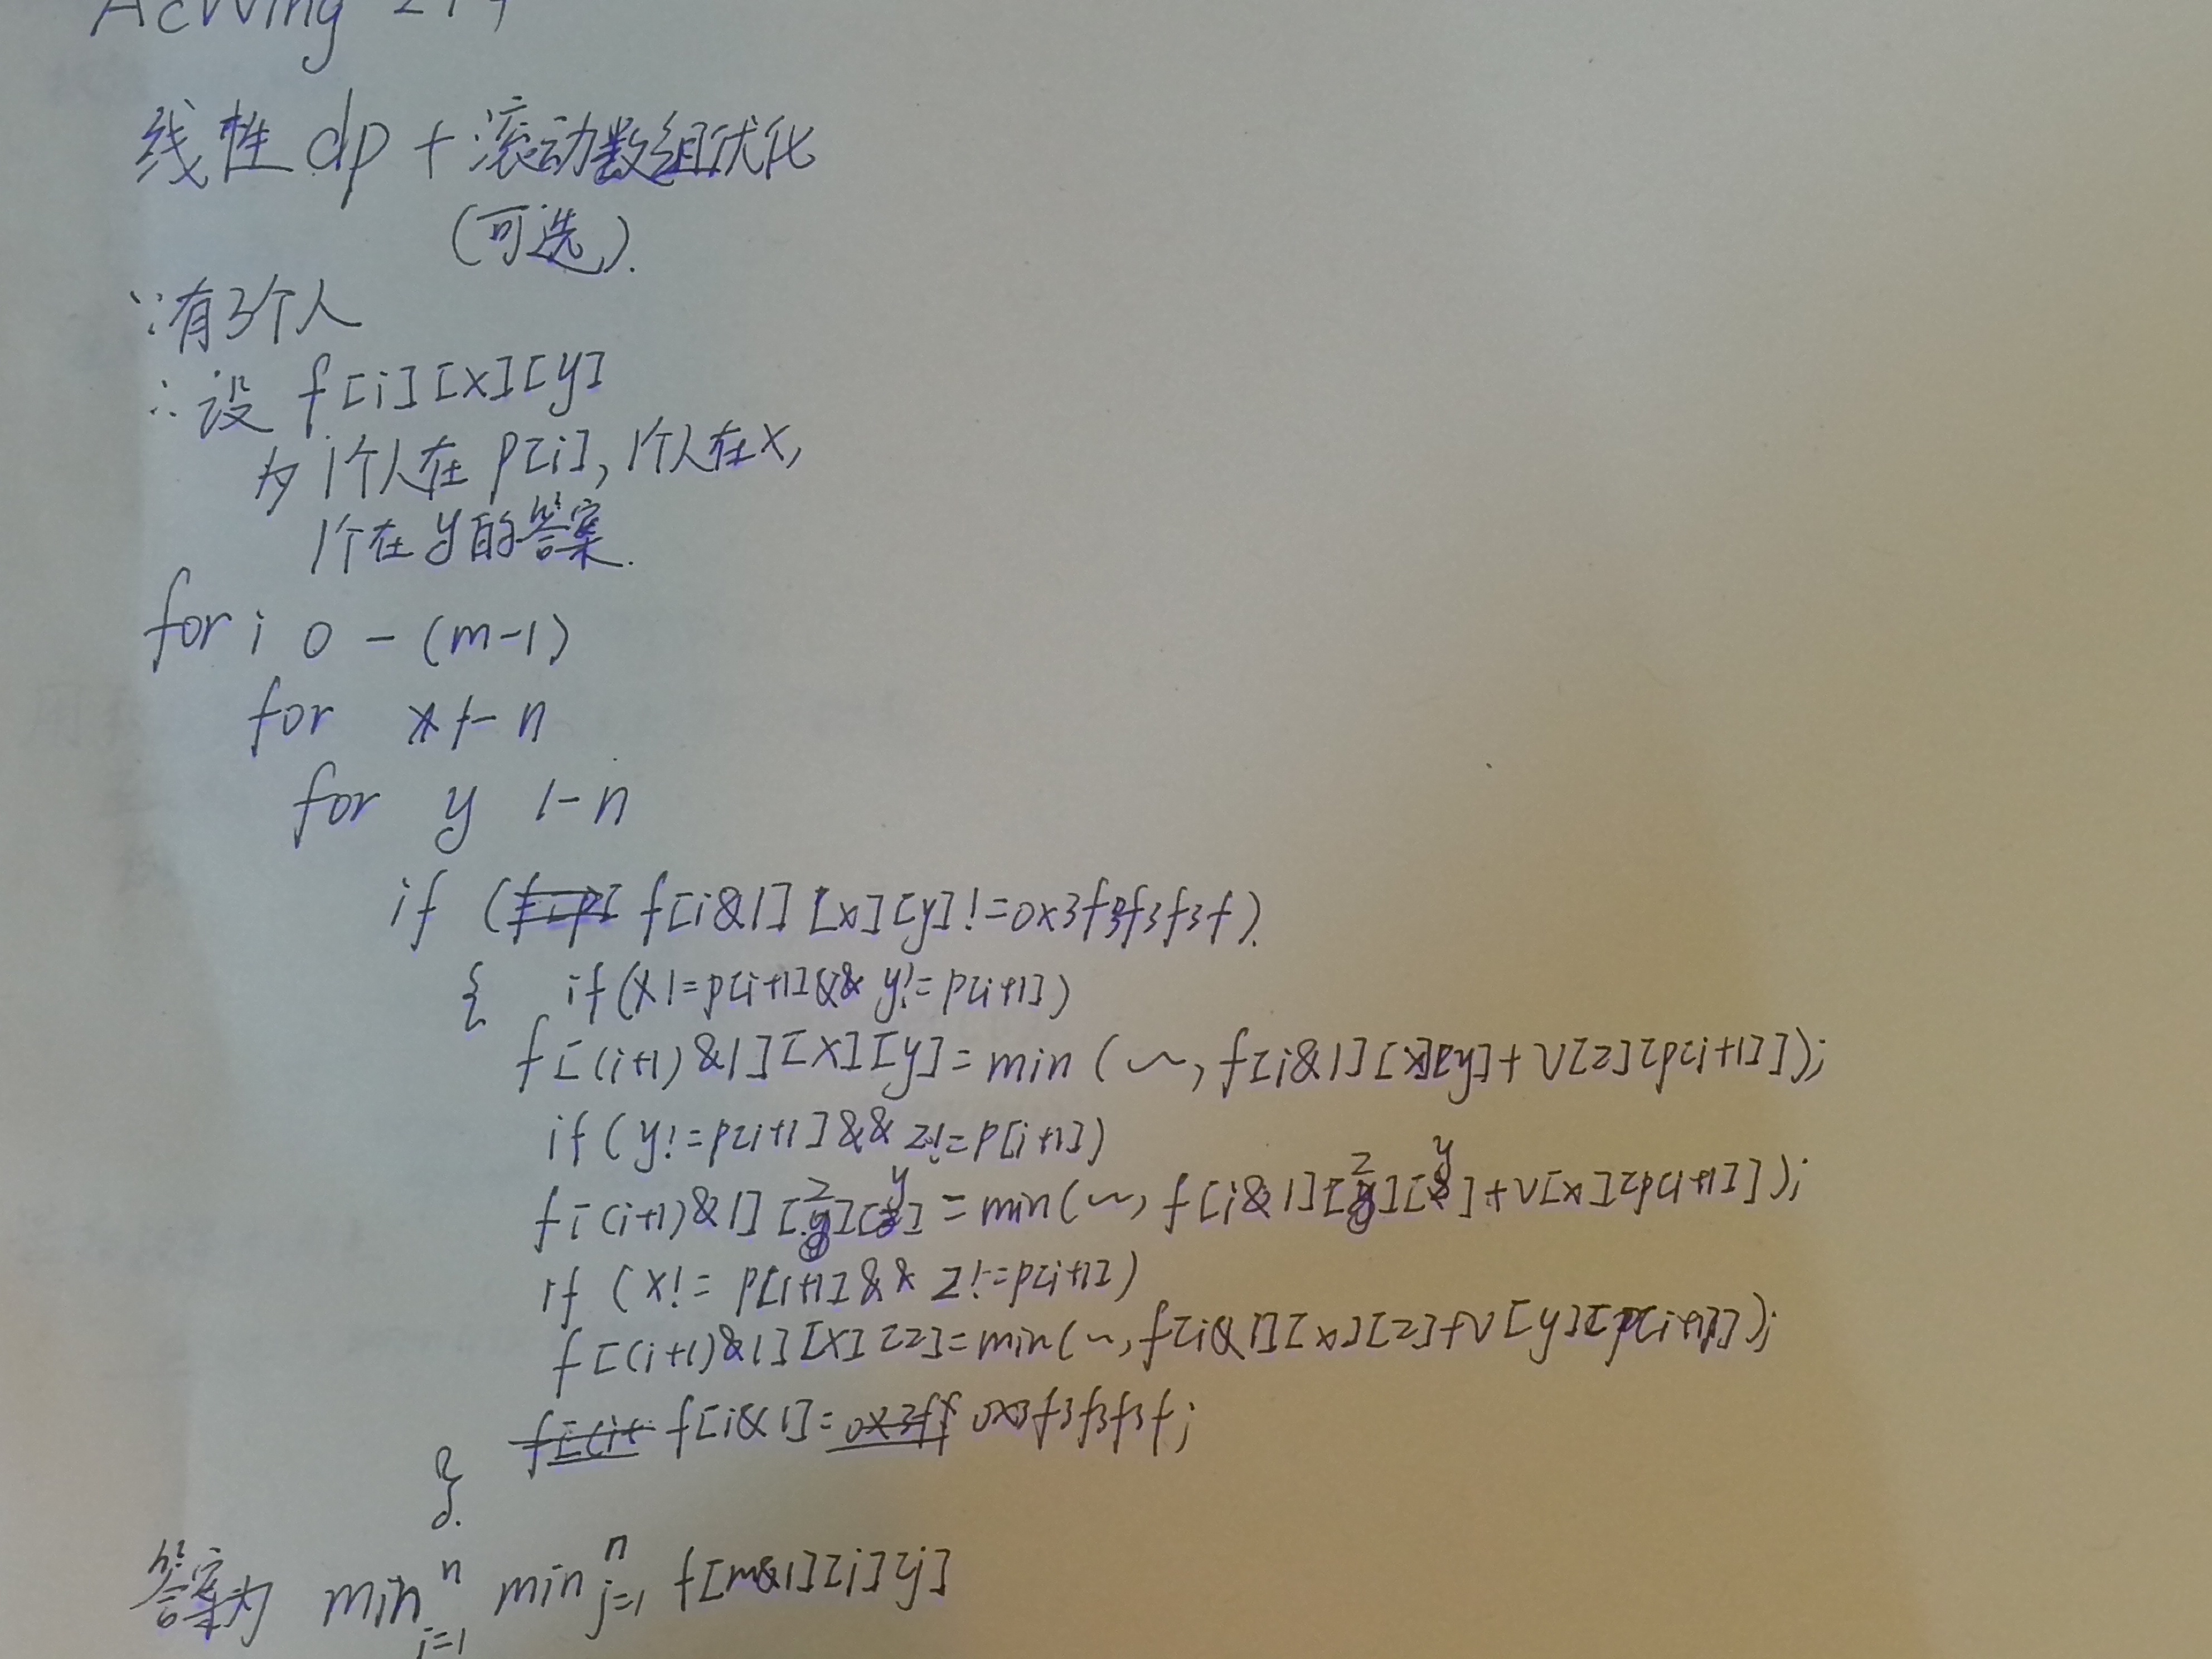 AcWing 274
线性dp+滚动数组优化
(可选).
∵有3个人
∴设 f[i][x][y]
为1个人在p[i],1个人在x,
1个在y的答案.
for i 0-(m-1)
for x 1-n
for y 1-n
if ( f[i&1][x][y]!=0x3f3f3f3f).
{ if(x!=p[i+1]&& y!=p[i+1])
f[(i+1)&1][x][y]=min(~,f[i&1][x][y]+v[z][p[i+1]]);
if(y!=p[i+1]&& z!=p[i+1])
f[(i+1)&1][z][y]=min(~,f[i&1][z][y]+v[x][p[i+1]]);
if (x!=p[i+1]&& z!=p[i+1])
f[(i+1)&1][x][z]=min(~,f[i&1][x][z]+v[y][p[i+1]]);
f[i&1]=0x3f3f3f3f;
}.
答案为 min n i=1 min n j=1 f[m&1][i][j]